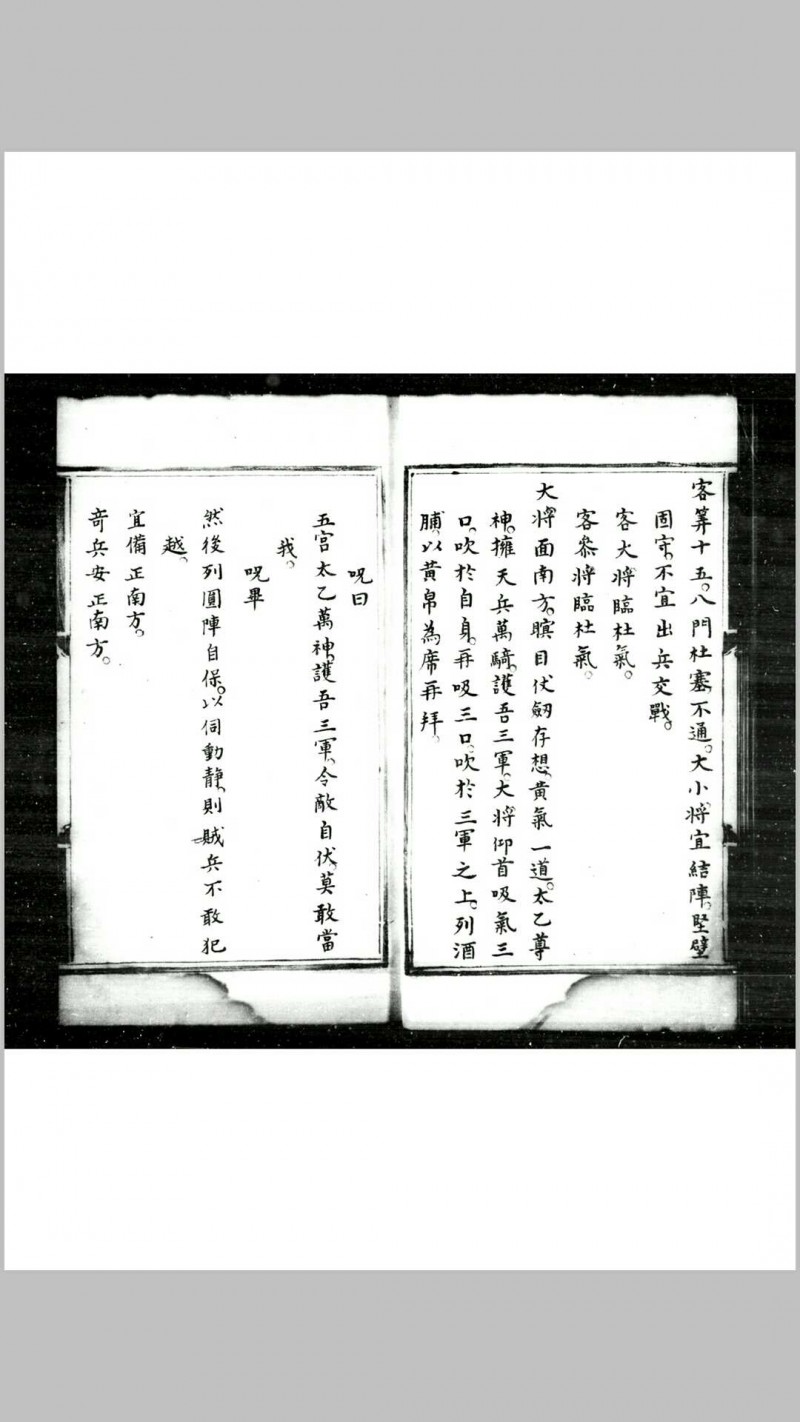 客筭十五。八門杜塞。不通。大小將宜結陣。堅壁
固守。不宜出兵交戰。
客大將臨杜氣。
客叅將臨杜氣。
大將面南方。瞑目伏劒存想。黄氣一道。太乙尊
神。擁天兵萬騎。護吾三軍。大將仰首吸氣三
口。吹於自身。再吸三口。吹於三軍之上。列酒
脯。以黄帛為席再拜。
呪曰
五宫太乙萬神。護吾三軍。令敵自伏。莫敢當
我。
呪畢
然後列圓陣自保。以伺動靜。則賊兵不敢犯
越。
宜備正南方。
竒兵安正南方。